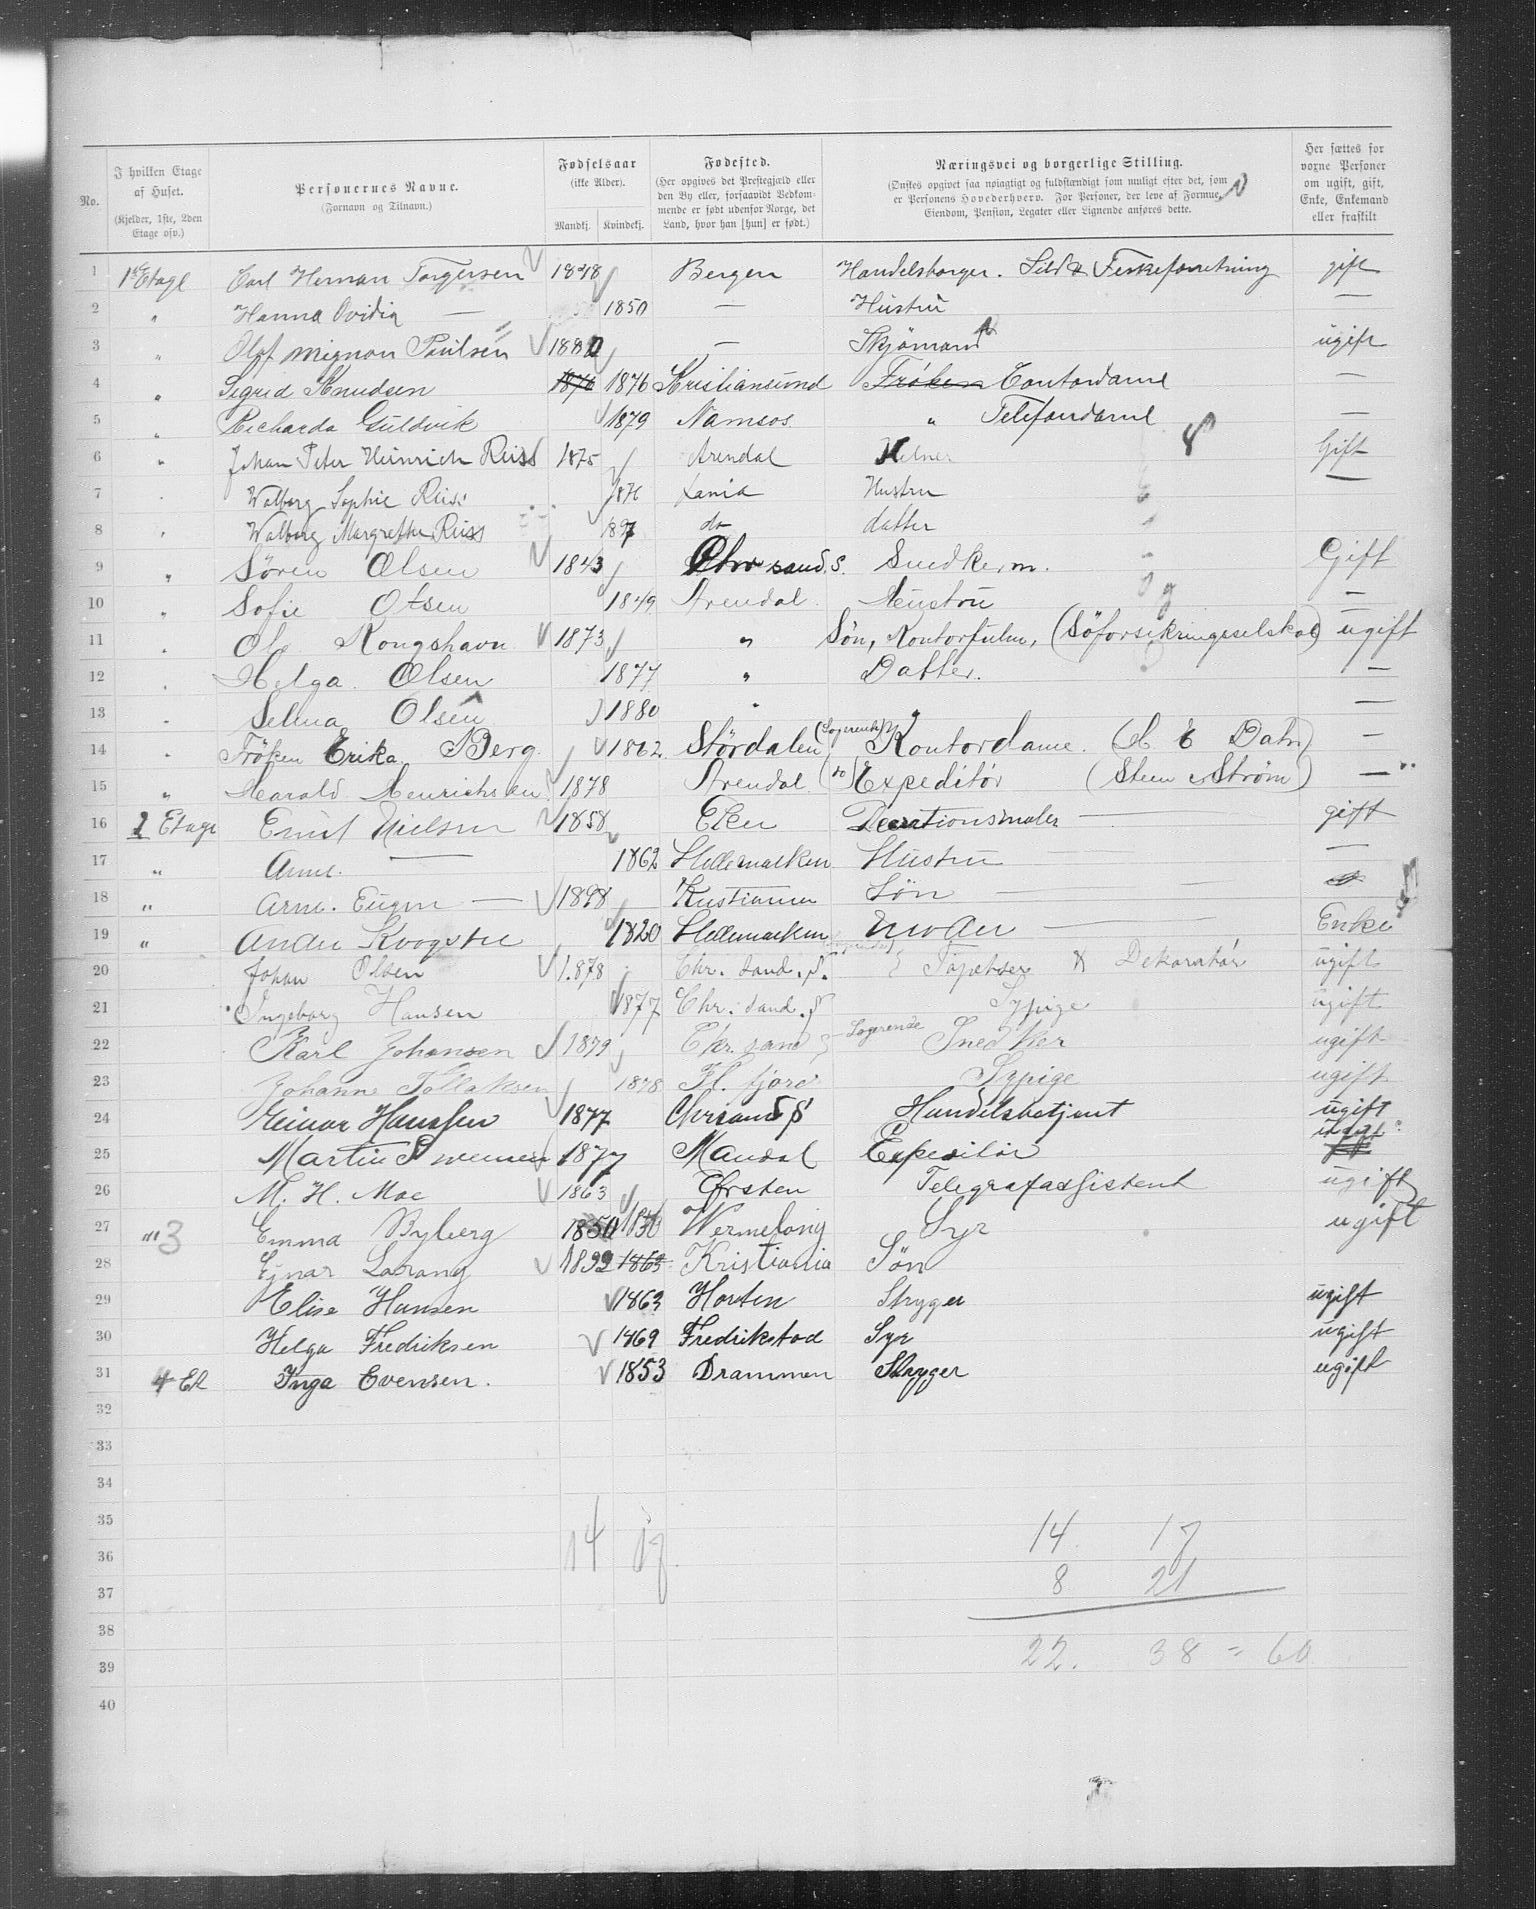 No. | I hvilken Etage af Huset. (Kjelder, 1ste, 2den Etage osv.) | Personernes Navne. (Fornavn og Tilnavn.) | Fødselsaar (ikke Alder). Mandkj. Kvindekj. | Fødested. (Her opgives det Prestegjæld eller den By eller, forsaavidt Vedkommende er født udenfor Norge, det Land, hvor han [hun] er født.) | Næringsvei og borgerlige Stilling. (Ønskes opgivet saa nøiagtigt og fuldstændigt som muligt efter det, som er Personens Hovederhverv. For Personer, der leve af Formue, Eiendom, Pension, Legater eller Lignende anføres dette. | Her sættes for voxne Personer om ugift, gift, Enke, Enkemand eller fraskilt
1 1ste Etage Carl Herman Torgersen 1848 Bergen Handelsborger. Sild & Feskeforretning gift
2 " Hanna Ovidia — 1850 — Hustru —
3 " Olaf Mignon Paulsen 1880 — Skjömand ugift
4 " Sigrid Knudsen 1876 1876 Kristiansund Fröken Contordame —
5 " Richarda Guldvik 1879 Namsos " Telefondame —
6 " Johan Peter Heinrich Reiss 1875 Arendal Kelner Gift
7 " Walborg Sophie Reiss 1876 Hustru —
8 " Walborg Margrethe Reiss 1897 do datter
9 " Sören Olsen 1843 Chr sand S. Snedkerm. Gift
10 " Sofie Olsen 1849 Arendal Hustru —
11 " Ole Kongshavn 1873 " Søn, Kontorfulm, (Söforsikringsselskab) ugift
12 " Helga Olsen 1877 " Datter. —
13 " Selma Olsen 1880 " " —
14 " Fröken Erika Berg 1862 Stördalen (Logerende) Kontordame. —
15 " Harald Henrichsen 1878 Arendal (do) Expeditör (Steen & Ström) — "
16 2 Etage Ernst Nielsen 1858 Eker Decrationsmaler — gift
17 " Anne. — 1862 Hedemarken Hustru —
18 " Arne. Eugen — 1898 Kristiania Søn —
19 " 1820 Hedemarken Moder — Enke
20 Johan Olsen 1878 Chr. sand. S. Tapetser & Dekoratör ugift
21 Ingeborg Hansen 1877 Chr. sand. S Sypige ugift
22 Karl Johansen 1879 Chr. sand Logerende Snedker ugift
23 Johanne Tollaksen 1878 Fl. fjord Sypige ugift
24 Einar Hanssen 1877 Chrsand S Handelsbetjent ugift
25 Martin 1877 Mandal Expeditör ugift
26 M. H. Moe 1863 Ørsten Telegrafassistent ugift
27 "" 3 Emma Byberg 1850 1850 Syr ugift
28 Ejnar Lorang 1892 1863 Kristiania Søn
29 Elise Hansen 1863 Horten Stryger ugift
30 Helga Fredriksen 1869 Fredrikstad Syr ugift
31 4 Et Inga Evensen. 1853 Drammen Stryger ugift
32
33
34
35 14 17 14 17
36 8 21
37
38
39 22. 38 = 60
40